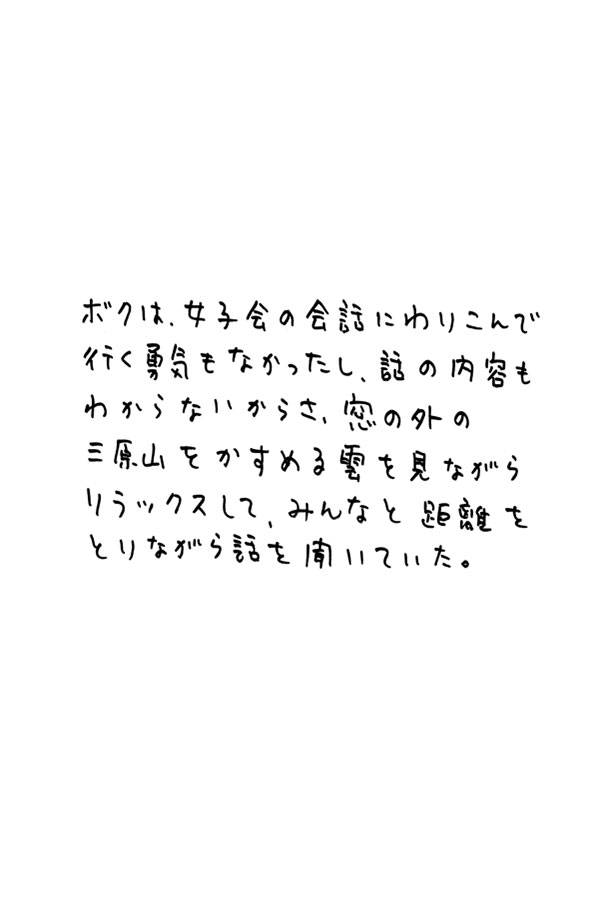 ボクは、女子会の会話にわりこんで
行く勇気もなかったし、話の内容も
わからないからさ、窓の外の
三原山をかすめる雲を見ながら
リラックスして、みんなと距離を
とりながら話を聞いていた。